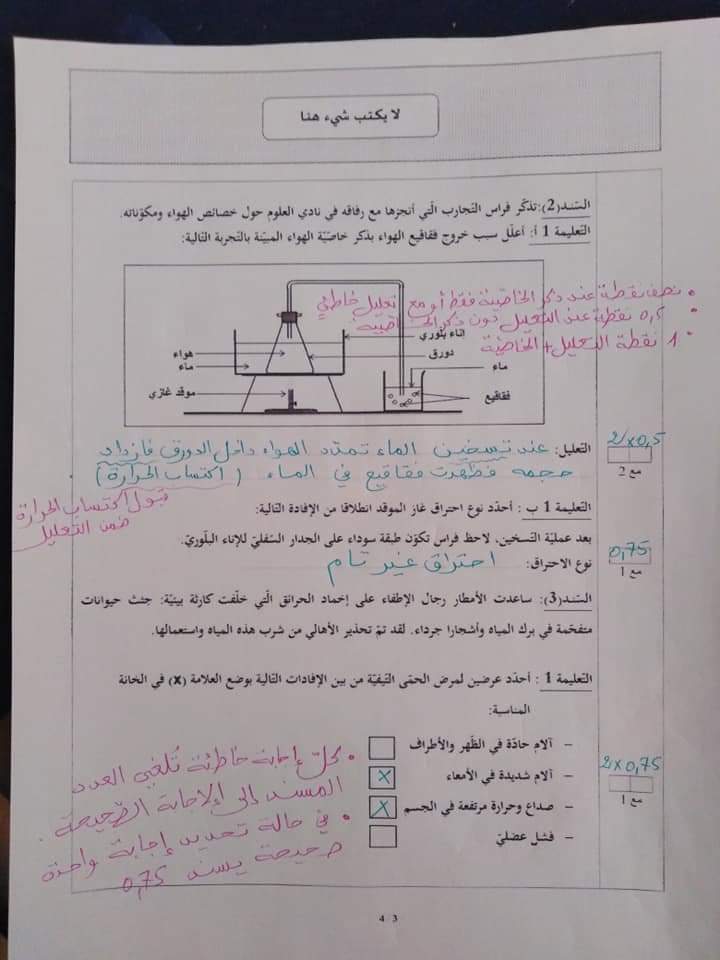 لا يكتب شيء هنا
السّند(2):تذكّر فراس التّجارب الّتي أنجزها مع رفاقه في نادي العلوم حول خصائص الهواء ومكوّناته.
التّعليمة 1 أ: أعلّل سبب خروج فقاقيع الهواء بذكر خاصّيّة الهواء المبيّنة بالتّجربة التّالية:
• نصف نقطة عند ذكر الخاصّيّة فقط أو مع تعليل خاطئ
• 0,5 نقطة عند التعليل دون ذكر الخاصّيّة
• 1 نقطة التعليل + الخاصّيّة
إناء بلّوري
دورق
هواء
ماء
ماء
موقد غازي
فقاقيع
2/×0,5
مع 2
التعليل: عند تسخين الماء تمدّد الهواء داخل الدورق فازداد
حجمه فظهرت فقاقيع في الماء (اكتساب الحرارة)
قبول اكتساب الحرارة
ضمن التعليل
التّعليمة 1 ب : أحدّد نوع احتراق غاز الموقد انطلاقا من الإفادة التّالية:
بعد عمليّة التّسخين، لاحظ فراس تكوّن طبقة سوداء على الجدار السّفليّ للإناء البلّوريّ.
نوع الاحتراق: احتراق غير تام
0,75
مع 1
السّند(3): ساعدت الأمطار رجال الإطفاء على إخماد الحرائق الّتي خلّفت كارثة بيئيّة: جثث حيوانات
متفحّمة في برك المياه وأشجارا جرداء. لقد تمّ تحذير الأهالي من شرب هذه المياه واستعمالها.
التّعليمة 1 : أحدّد عرضين لمرض الحمّى التّيفيّة من بين الإفادات التّالية بوضع العلامة (x) في الخانة
المناسبة:
– آلام حادّة في الظّهر والأطراف
– آلام شديدة في الأمعاء x
– صداع وحرارة مرتفعة في الجسم x
– فشل عضليّ
2×0,75
مع 1
• كلّ إجابة خاطئة تُلغي العدد
المسند إلى الإجابة الصّحيحة.
• في حالة تحديد إجابة واحدة
صحيحة يسند 0,75
4 3